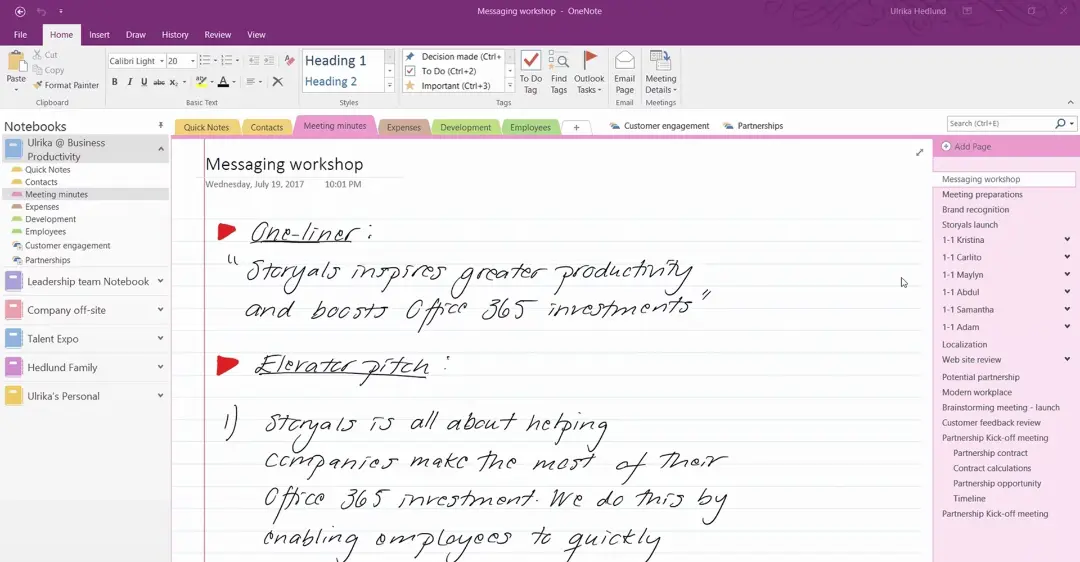 Messaging workshop - OneNote
Ulrika Hedlund
File Home Insert Draw History Review View
Paste
Cut
Copy
Format Painter
Clipboard
Calibri Light 20
B I U abc x₂ A
Basic Text
Heading 1
Heading 2
Styles
Decision made (Ctrl+
To Do (Ctrl+2)
Important (Ctrl+3)
To Do
Tag
Find
Tags
Outlook
Tasks
Tags
Email
Page
Email
Meeting
Details
Meetings
Notebooks
Ulrika @ Business
Productivity
Quick Notes
Contacts
Meeting minutes
Expenses
Development
Employees
Customer engagement
Partnerships
Leadership team Notebook
Company off-site
Talent Expo
Hedlund Family
Ulrika's Personal
Quick Notes Contacts Meeting minutes Expenses Development Employees + Customer engagement Partnerships
Search (Ctrl+E)
Messaging workshop
Wednesday, July 19, 2017 10:01 PM
One-liner :
"Storyals inspires greater productivity
and boosts Office 365 investments"
Elevator pitch :
1) Storyals is all about helping
companies make the most of their
Office 365 investment. We do this by
enabling employees to quickly
Add Page
Messaging workshop
Meeting preparations
Brand recognition
Storyals launch
1-1 Kristina
1-1 Carlito
1-1 Maylyn
1-1 Abdul
1-1 Samantha
1-1 Adam
Localization
Web site review
Potential partnership
Modern workplace
Brainstorming meeting - launch
Customer feedback review
Partnership Kick-off meeting
Partnership contract
Contract calculations
Partnership opportunity
Timeline
Partnership Kick-off meeting